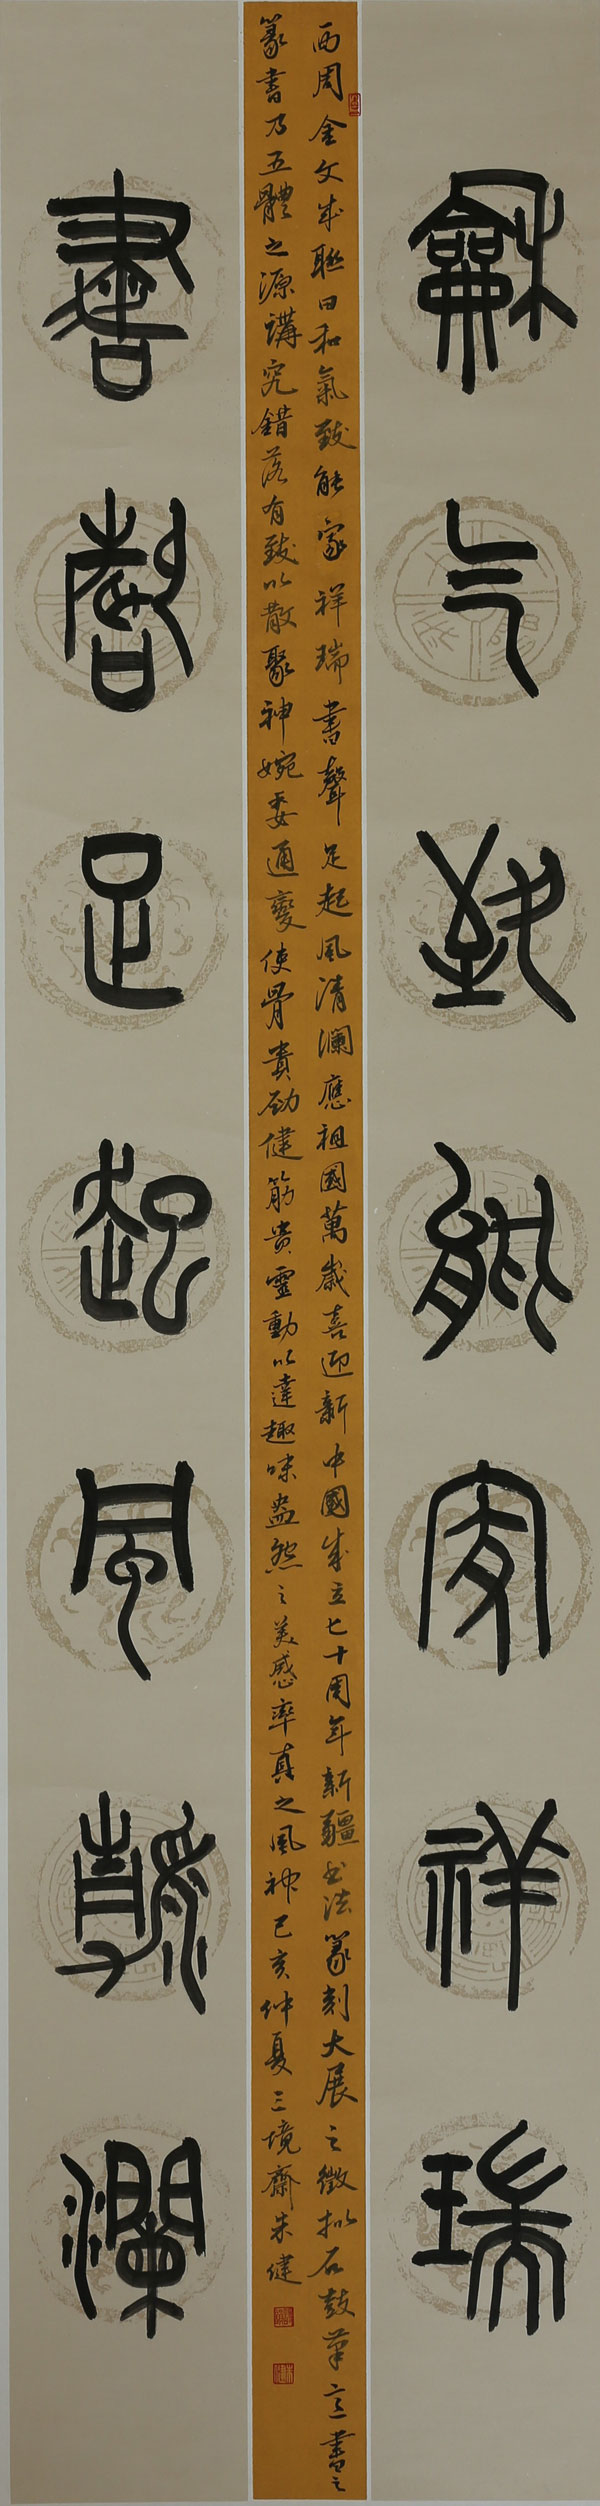 龢气致能家祥瑞
西周金文成聯曰和氣致能家祥瑞書聲足起風清瀾應祖國萬歲喜迎新中國成立七十周年新疆书法篆刻大展之徵拟石鼓筆意書之
篆書乃五體之源講究錯落有致以散聚神婉委通變使骨貴勁健筋貴靈動以達趣味盎然之美感率真之風神己亥仲夏三境齋朱健
書聲足起風清瀾